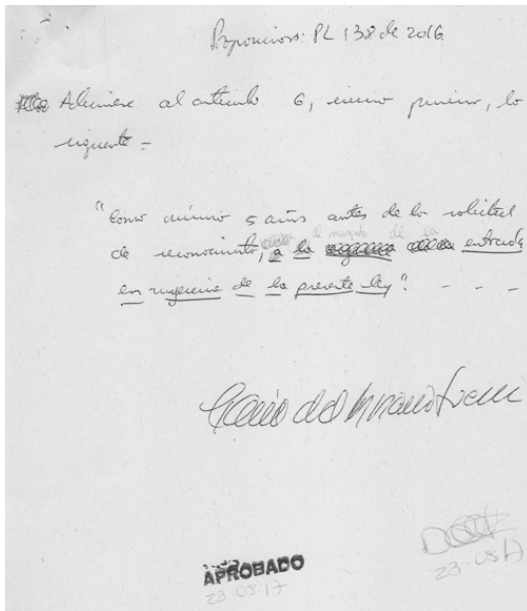 Proposicion: PL 138 de 2016
Adicionese al artículo 6, inciso primero, lo
siguiente -
"Como mínimo 5 años antes de la solicitud
al momento de la
de reconocimiento, a la entrada
en vigencia de la presente ley". - - -
APROBADO
23-05-17
23-05-17